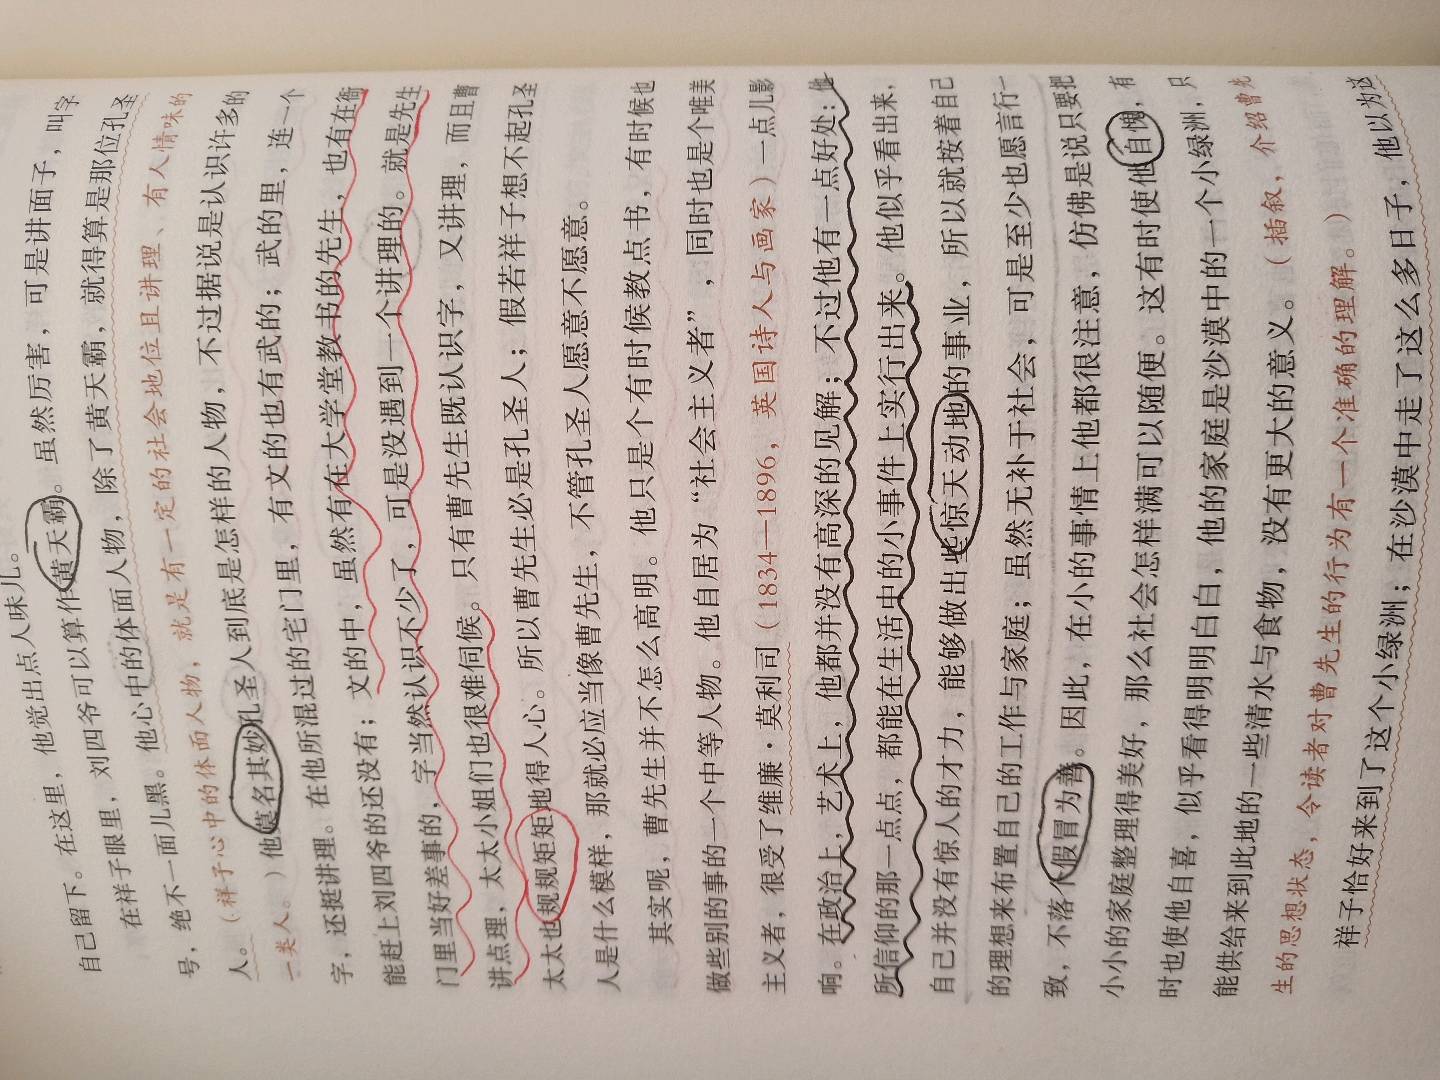 自己留下。在这里，他觉出点人味儿。
在祥子眼里，刘四爷可以算作黄天霸。虽然厉害，可是讲面子，叫字
号，绝不一面儿黑。他心中的体面人物，除了黄天霸，就得算是那位孔圣
人。（祥子心中的体面人物，就是有一定的社会地位且讲理、有人情味的
一类人。）他莫名其妙孔圣人到底是怎样的人物，不过据说是认识许多的
字，还挺讲理。在他所混过的宅门里，有文的也有武的；武的里，连一个
能赶上刘四爷的还没有；文的中，虽然有在大学堂教书的先生，也有在衙
门里当好差事的，字当然认识不少了，可是没遇到一个讲理的。就是先生
讲点理，太太小姐们也很难伺候。只有曹先生既认识字，又讲理，而且曹
太太也规规矩矩地得人心。所以曹先生必是孔圣人；假若祥子想不起孔圣
人是什么模样，那就必应当像曹先生，不管孔圣人愿意不愿意。
其实呢，曹先生并不怎么高明。他只是个有时候教点书，有时候也
做些别的事的一个中等人物。他自居为“社会主义者”，同时也是个唯美
主义者，很受了维廉·莫利司（1834—1896，英国诗人与画家）一点儿影
响。在政治上，艺术上，他都并没有高深的见解；不过他有一点好处：他
所信仰的那一点点，都能在生活中的小事件上实行出来。他似乎看出来，
自己并没有惊人的才力，能够做出些惊天动地的事业，所以就按着自己
的理想来布置自己的工作与家庭；虽然无补于社会，可是至少也愿言行一
致，不落个假冒为善。因此，在小的事情上他都很注意，仿佛是说只要把
小小的家庭整理得美好，那么社会怎样满可以随便。这有时使他自愧，有
时也使他自喜，似乎看得明明白白，他的家庭是沙漠中的一个小绿洲，只
能供给来到此地的一些清水与食物，没有更大的意义。（插叙，介绍曹先
生的思想状态，令读者对曹先生的行为有一个准确的理解。）
祥子恰好来到了这个小绿洲；在沙漠中走了这么多日子，他以为这